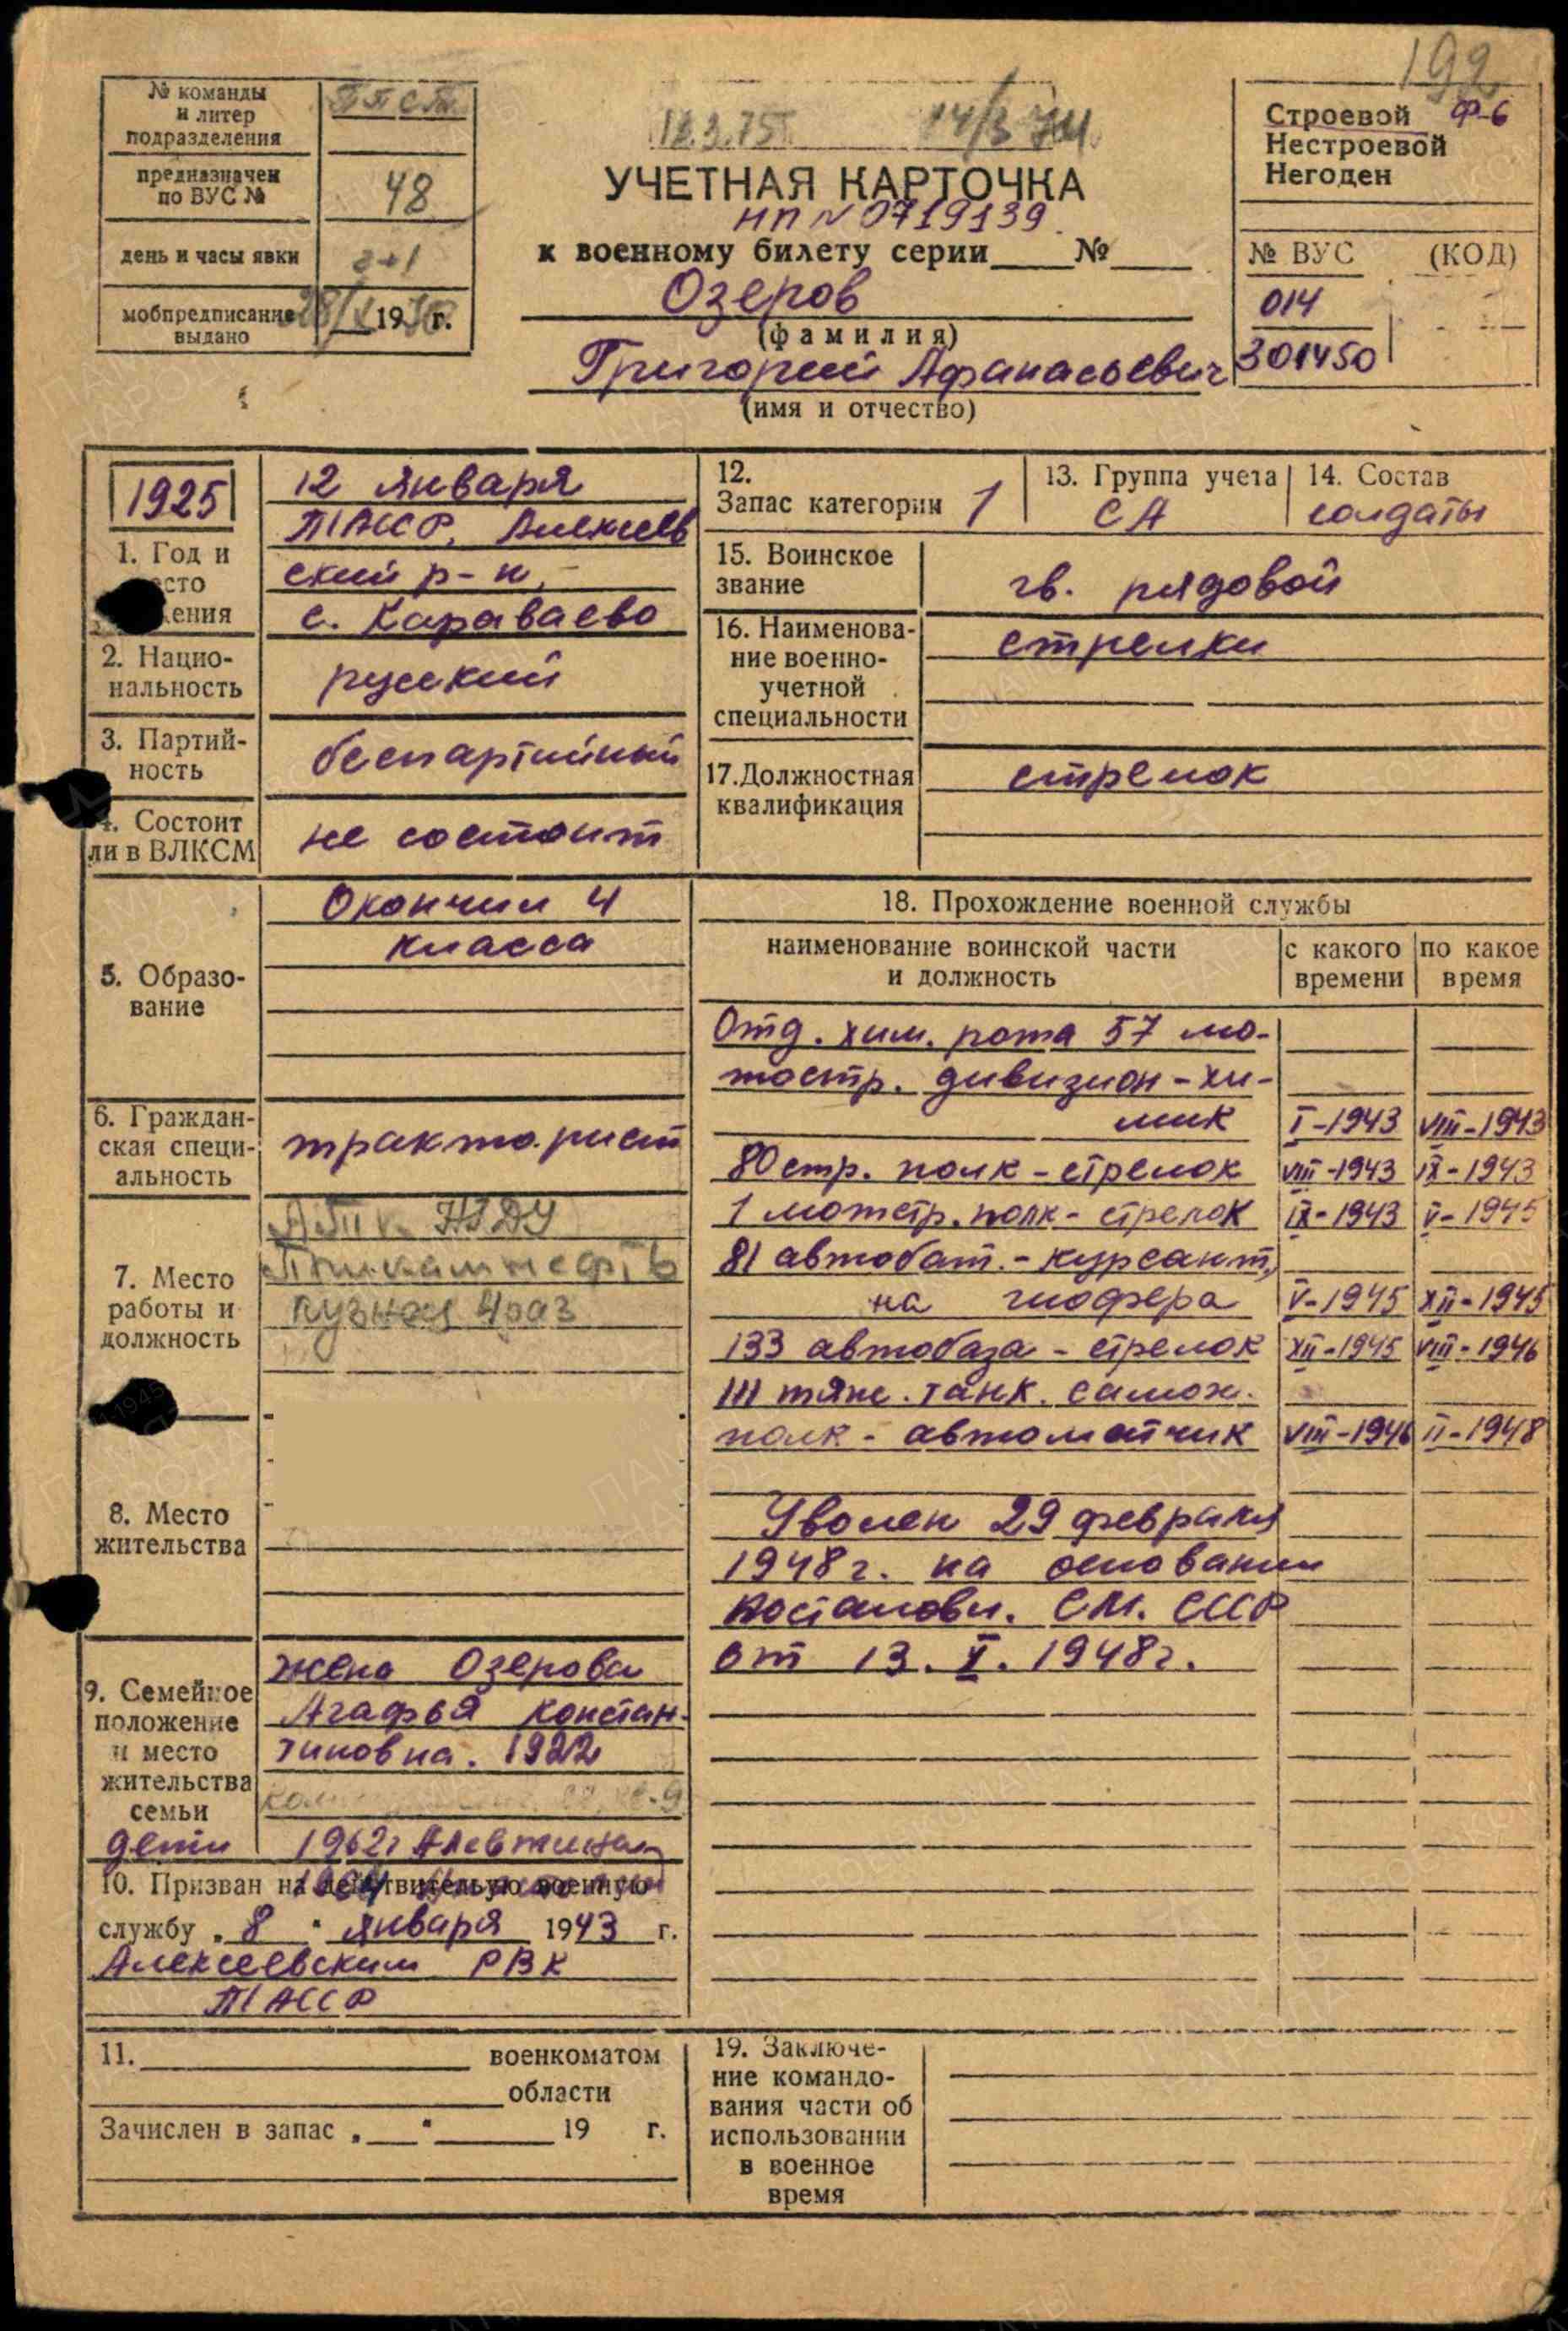 192
№ команды
и литер
подразделения
предназначен
по ВУС №
48
день и часы явки
2+1
мобпредписание
выдано
28/ 19 г.
12.3.75г. 14/3
УЧЕТНАЯ КАРТОЧКА
НП № 0719139
к военному билету серии №
Озеров
(фамилия)
Григорий Афанасьевич
(имя и отчество)
Строевой Ф-6
Нестроевой
Негоден
№ ВУС (КОД)
014
301450
1925
1. Год и
ения
12 января
ТАССР, Алексеев
ский р-н,
с. Караваево
2. Нацио-
нальность
русский
3. Партий-
ность
беспартийный
4. Состоит
ли в ВЛКСМ
не состоит
5. Образо-
вание
Окончил 4
класса
6. Граждан-
ская специ-
альность
тракторист
7. Место
работы и
должность
НГДУ
кузнец 4раз
8. Место
жительства
9. Семейное
положение
и место
жительства
семьи
жена Озерова
Агафья Констан-
тиновна. 1922
дети 1962г Алевтина
10. Призван на действительую военную
службу „8" января 1943 г.
Алексеевским РВК
ТАССР
11. военкоматом
области
Зачислен в запас „ " 19 г.
12.
Запас категории 1
13. Группа учета
СА
14. Состав
солдаты
15. Воинское
звание
гв. рядовой
16. Наименова-
ние военно-
учетной
специальности
стрелки
17.Должностная
квалификация
стрелок
18. Прохождение военной службы
наименование воинской части
и должность
с какого
времени
по какое
время
Отд. хим. рота 57 мо-
тостр. дивизион - хи-
мик I-1943 VIII-1943
80 стр. полк - стрелок VIII-1943 IX-1943
1 мотстр. полк - стрелок IX-1943 V-1945
81 автобат. - курсант,
на шофера V-1945 XII-1945
133 автобаза - стрелок XII-1945 VIII-1946
111 тяж. танк. самох.
полк - автоматчик VIII-1946 II-1948
Уволен 29 февраля
1948г. на основании
постановл. СМ. СССР
от 13. X. 1948г.
19. Заключе-
ние командо-
вания части об
использовании
в военное
время